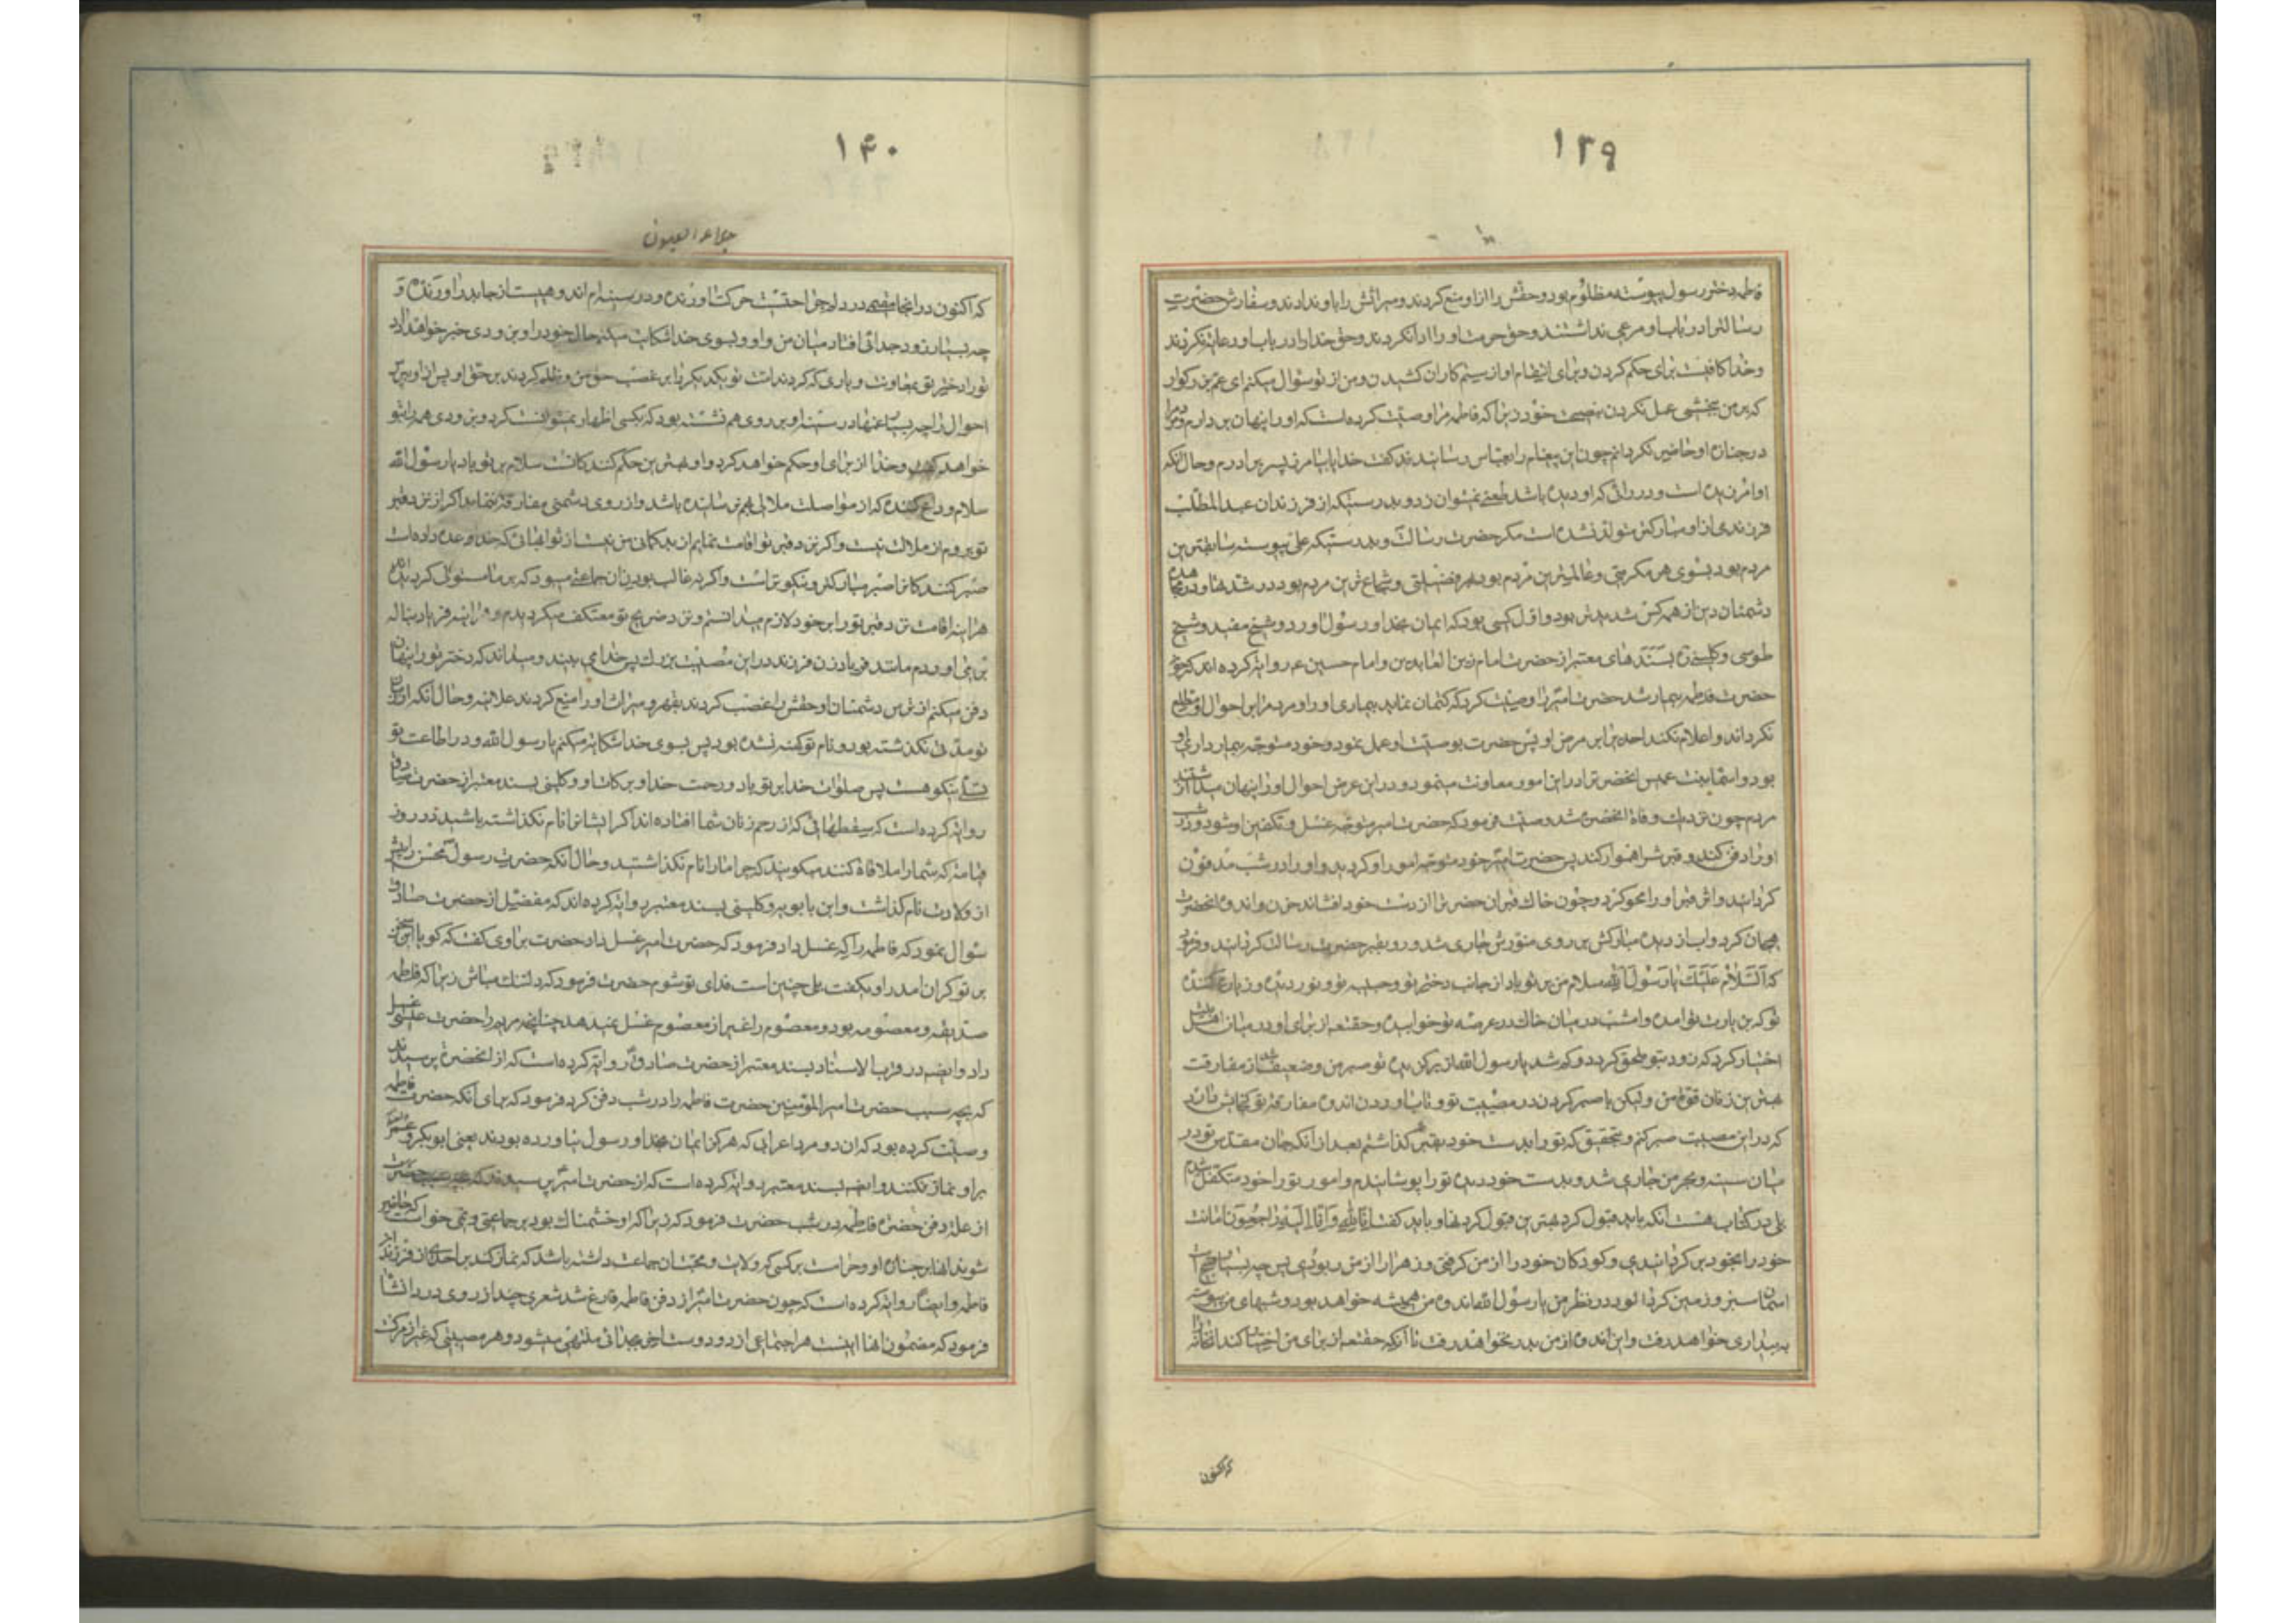 ۱۳۹
فاطمه دختر رسول پیوسته مظلوم بود و حقش را از او منع کردند و میراثش را باو ندادند و سفارش حضرت
رسالترا در باب او مرعی نداشتند و حق حرمت او را ادا نکردند و حق خدا را در باب او رعایت نکردند
و خدا کافیست برای حکم کردن و برای انتقام او از ستم کاران کشیدن و من از تو سؤال میکنم ای عم بزرگوار
که بر من ببخشی عمل نکردن بنصیحت خود زیرا که فاطمه مرا وصیت کرده است که او را پنهان بردارم و
در جنازه او حاضر نگردانم چون این پیغام را بعباس رسانیدند گفت خدا بیامرزد پسر برادرم و حال آنکه
او امرزیده است و در رائی که او دیده باشد طعنی نمیتوان زد و بدرستیکه از فرزندان عبدالمطلب
فرزندی از او مبارکتر متولد نشده است مگر حضرت رسالت و بدرستیکه علی پیوسته سابقترین
مردم بود بسوی هر مکرمتی و عالمترین مردم بود بهر فضیلتی و شجاع ترین مردم بود در شدتها و در
دشمنان دین از همه کس شدیدتر بود و اول کسی بود که ایمان بخدا و رسول اورد و شیخ مفید و شیخ
طوسی و کلینی ره بسندهای معتبر از حضرت امام زین العابدین و امام حسین عم روایة کرده اند که چون
حضرت فاطمه بیمار شد حضرت امیر را وصیت کرد که کتمان نماید بیماری او را و مردم را بر احوال او مطلع
نگرداند و اعلام نکند احدیرا بر مرض او پس حضرت بوصیت او عمل نمود و خود متوجه بیمارداری او
بود و اسما بنت عمیس انحضرترا در این امور معاونت مینمود و در این عرض احوال او را پنهان میداشتند از
مردم چون نزدیک وفاة انحضرت شد وصیت فرمود که حضرت امیر متوجه غسل و تکفین او شود و در شب
او را دفن کند و قبرش را هموار کند پس حضرت امیر خود متوجه امور او گردید و او را در شب مدفون
گردانید و اثر قبر او را محو کرد و چون خاک قبر ان حضرت را از دست خود افشاند حزن و اندوه انحضرت
هیجان کرد و اب از دیده مبارکش بر روی منورش جاری شد و رو بقبر حضرت رسالت گردانید و فرمود
که السلام علیک یا رسول الله سلام من بر تو باد از جانب دختر تو و حبیبه تو و نور دیده و زیارت کننده
تو که بزیارت تو امده و امشب در میان خاک در عرصه تو خوابیده و حقتعم از برای او در میان اهل بیت
اختیار کرد که زود بتو ملحق گردد و کم شد یا رسول الله از برگزیده تو صبر من و ضعیف شد از مفارقت
بهترین زنان قوة من ولیکن با صبر کردن در مصیبت تو و تاب اوردن اندوه مفارقة تو گنجایش دارد
که در این مصیبت صبر کنم و بتحقیق که تو را بدست خود بقبر گذاشتم بعد از آنکه جان مقدس تو در
میان سینه و نحر من جاری شد و بدست خود دیده تو را پوشانیدم و امور تو را خود متکفل شدم
بلی در کتاب خدا هست انکه باید قبول کرد بهترین قبول کردنها و باید گفت انا لله و انا الیه راجعون امانت
خود را بخود برگردانیدی و گروگان خود را از من گرفتی و زهرا را از من ربودی پس چه بسیار قبیح است
اسمان سبز و زمین گرد الود در نظر من یا رسول الله اندوه من همیشه خواهد بود و شبهای من پیوسته
به بیداری خواهد رفت و این اندوه از من بدر نخواهد رفت تا آنکه حقتعم از برای من اختیار کند انخانه را
که اکنون
۱۴۰
جلاء العیون
که اکنون در انجا مقیم در دلم جراحتیست چرکت اورنده و در سینه ام اندوهیست از جا بدر اورنده و
چه بسیار زود جدائی افتاد میان من و او و بسوی خدا شکایت میکنم حال خود را و بزودی خبر خواهد داد
تو را دختر تو بمعاونت و یاری که کردند امت تو یکدیگر را بر غصب حق من و ظلم کردند بر حق او پس از او بپرس
احوال را چه بسیار غمها در سینه او بر روی هم نشسته بود که بکسی اظهار نمیتوانست کرد و بزودی همه را بتو
خواهد گفت و خدا از برای او حکم خواهد کرد و او بهترین حکم کنندگانست سلام بر تو باد یا رسول الله
سلام وداع کننده که از مواصلت ملالی بهم نرسانیده باشد و از روی دشمنی مفارقة ننماید اگر از نزد قبر
تو بروم از ملالت نیست و اگر نزد قبر تو اقامت نمایم از بد گمانی من نیست از ثوابهائی که خدا وعده داده است
صبر کنندگانرا صبر مبارکتر و نیکوتر است و اگر نه غالب بودن ان جماعتی میبود که بر ما مستولی گردیده اند
هر اینه اقامت نزد قبر تو را بر خود لازم میدانستم و نزد ضریح تو معتکف میگردیدم و هر اینه فریاد بناله
بر می اوردم مانند فریاد زن فرزند در این مصیبت بزرگ پس خدا می بیند و میداند که دختر تو را پنهان
دفن میکنم از ترس دشمنان او حقش را غصب کردند بقهر و میراث او را منع کردند علانیه و حال آنکه از
تو مدتی نگذشته بود و نام تو کهنه نشده بود پس بسوی خدا شکایة میکنم یا رسول الله و در اطاعت تو
تسلی نیکو هست پس صلوات خدا بر تو باد و رحمت خدا و برکات او و کلینی بسند معتبر از حضرت صادق
روایة کرده است که سقطهائی که از رحم زنان شما افتاده اند اگر ایشانرا نام نگذاشته باشید در روز
قیامة که شما را ملاقاة کنند میگویند که چرا ما را نام نگذاشتید و حال آنکه حضرت رسول محسن را پیش
از ولادت نام گذاشت و ابن بابویه و کلینی بسند معتبر روایة کرده اند که مفضل از حضرت صادق
سؤال نمود که فاطمه را که غسل داد فرمود که حضرت امیر غسل داد حضرت براوی گفت که گویا این سخن
بر تو گران امد راوی گفت بلی چنین است فدای تو شوم حضرت فرمود که دلتنگ مباش زیرا که فاطمه
صدیقه و معصومه بود و معصوم را غیر از معصوم غسل نمیدهد چنانچه مریم را حضرت عیسی غسل
داد و ایضا در قرب الاسناد بسند معتبر از حضرت صادق روایة کرده است که از انحضرت پرسیدند
که بچه سبب حضرت امیرالمؤمنین حضرت فاطمه را در شب دفن کرد فرمود که برای آنکه حضرت فاطمه
وصیت کرده بود که ان دو مرد اعرابی که هرگز ایمان بخدا و رسول نیاورده بودند یعنی ابوبکر و عمر
بر او نماز نکنند و ایضا بسند معتبر روایة کرده است که از حضرت امیر پرسیدند که
از علة دفن حضرت فاطمه در شب حضرت فرمود که زیرا که او خشمناک بود بر جماعتی و نمی خواست که حاضر
شوند انها بر جنازه او و حرامست بر کسی که ولایت و محبت ان جماعت داشته باشد که نماز کند بر احدی از فرزندان
فاطمه و ایضا روایة کرده است که چون حضرت امیر از دفن فاطمه فارغ شد شعری چند از روی درد انشا
فرمود که مضمون انها اینست هر اجتماعی از دو دوست اخر بجدائی منتهی میشود و هر مصیبتی که غیر از مرگ